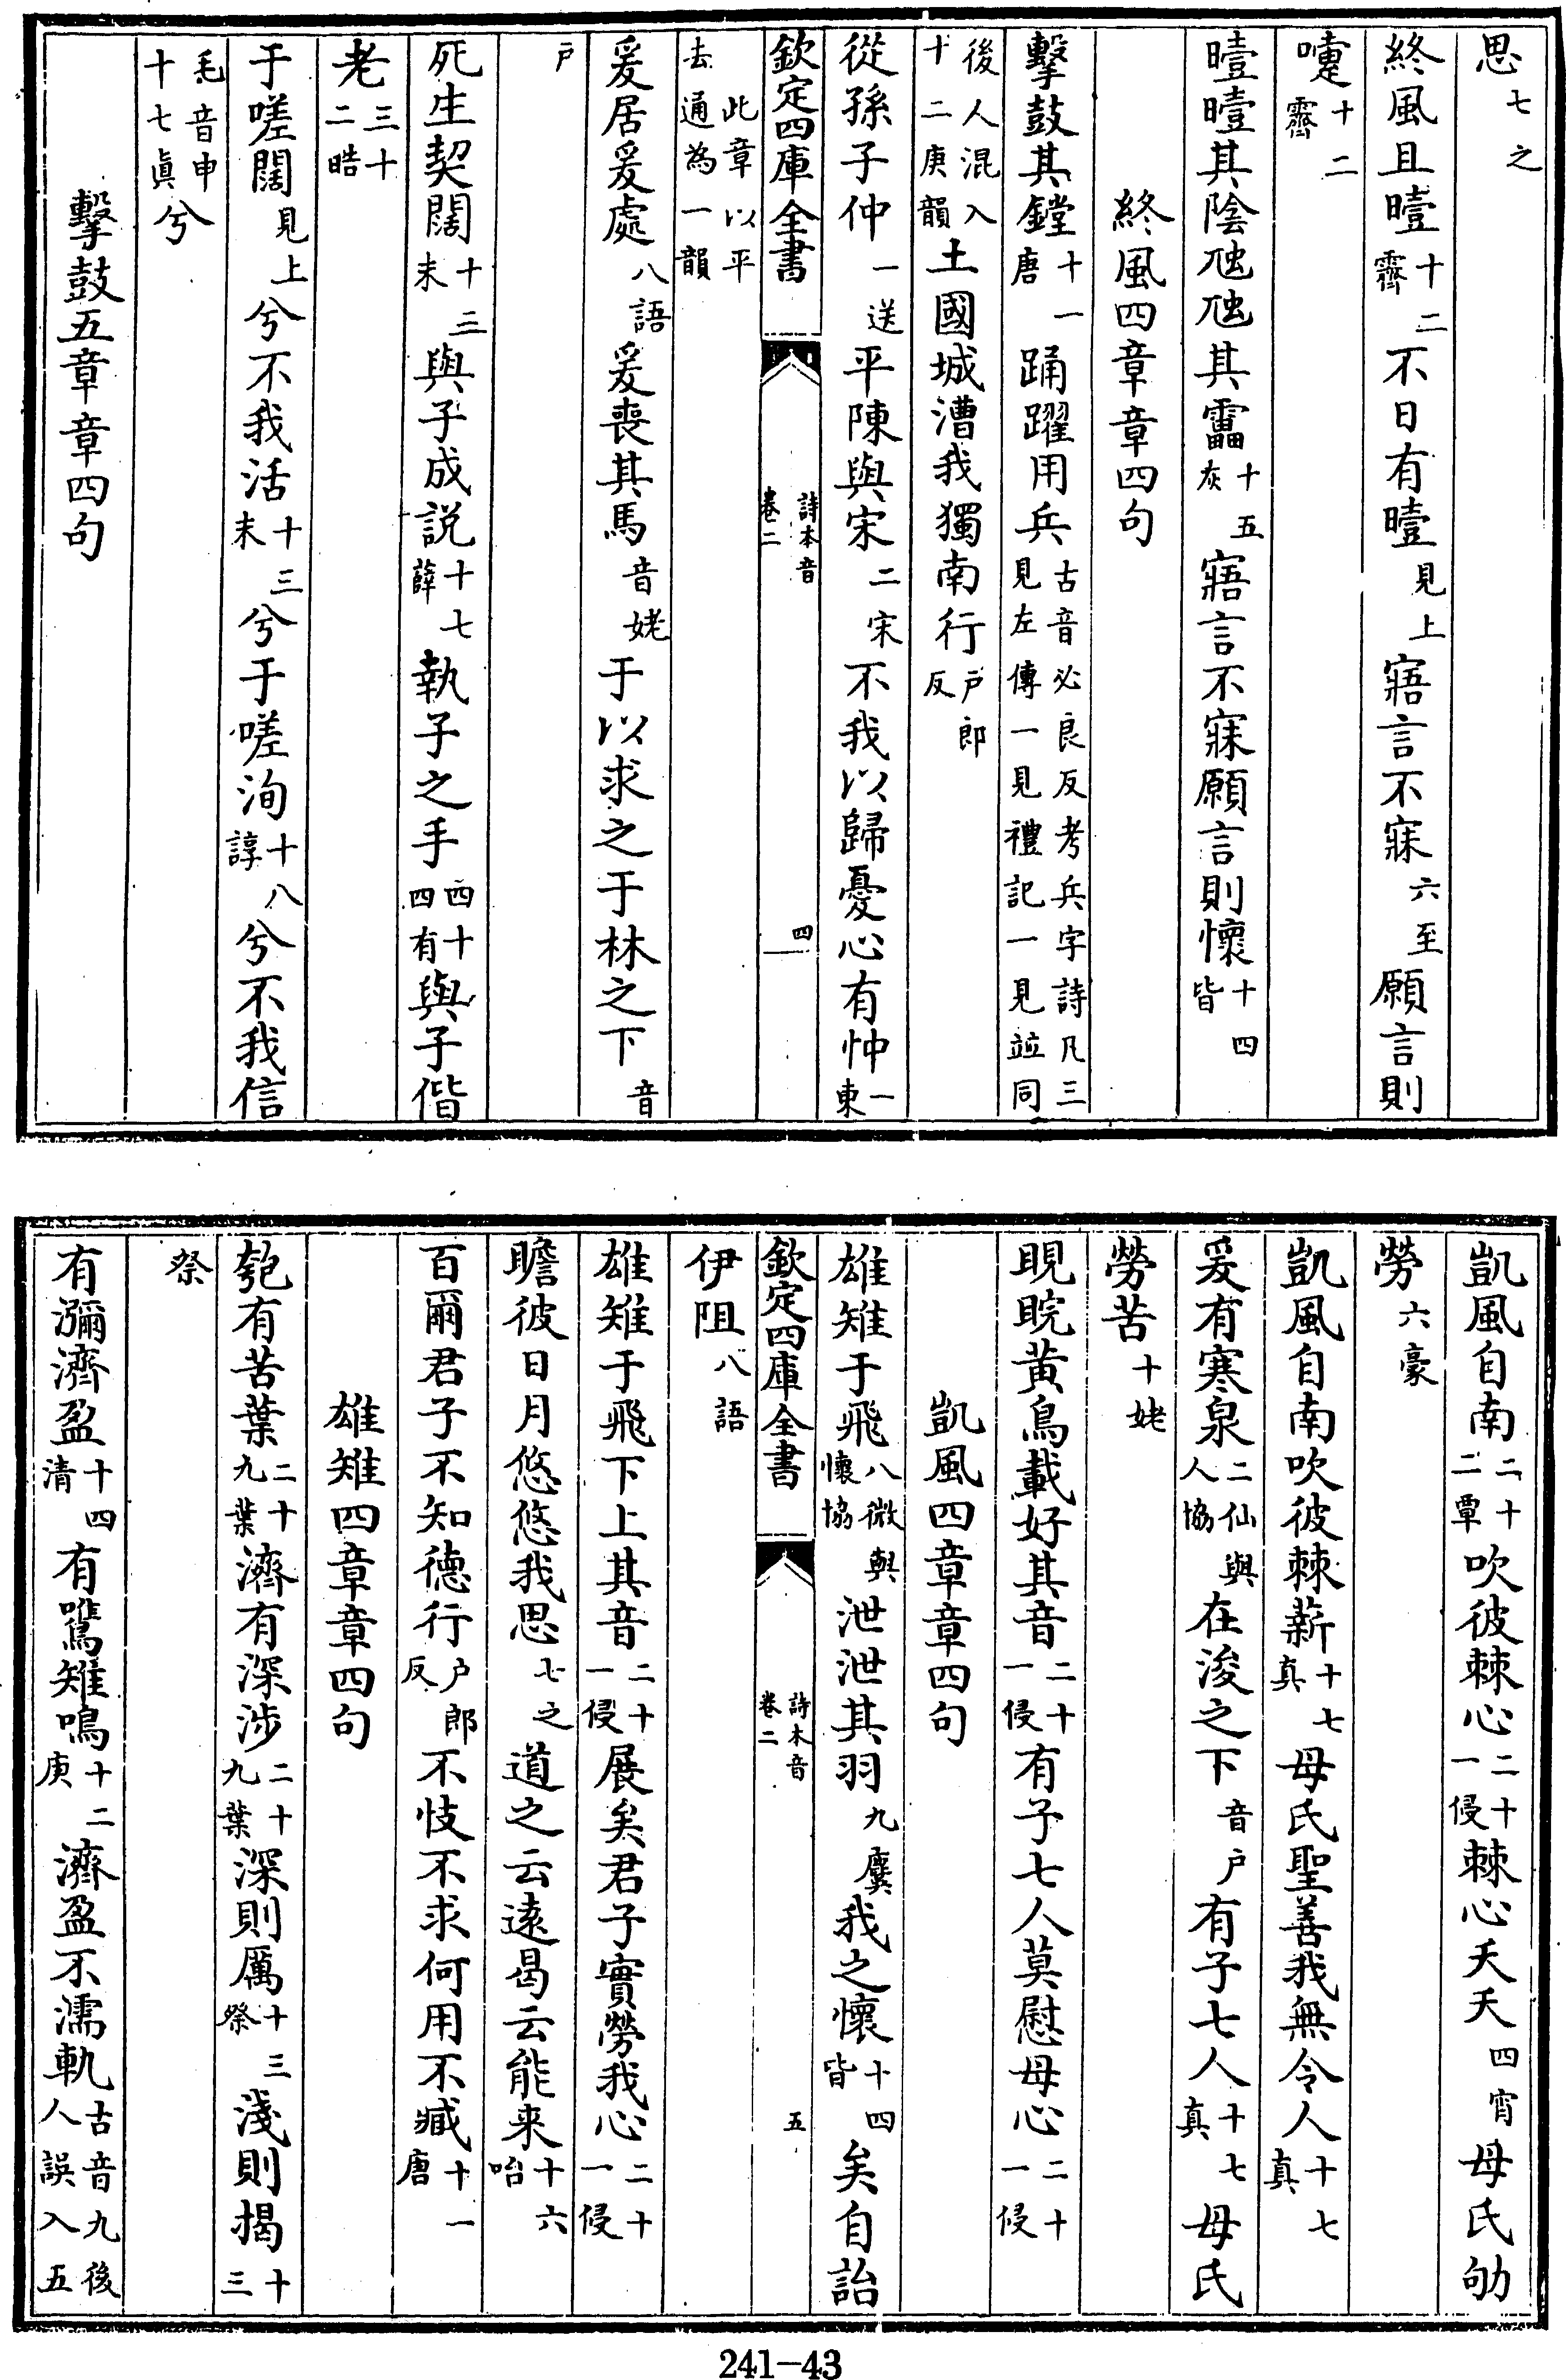 思七之
終風且曀十二霽不日有曀見上寤言不寐六至願言則
嚏十二霽
曀曀其陰虺虺其靁十五灰寤言不寐願言則懷十四皆
終風四章章四句
擊鼓其鏜十一唐踊躍用兵古音必良反考兵字詩凡三見左傳一見禮記一見竝同
後人混入十二庚韻土國城漕我獨南行户郎反
從孫子仲一送平陳與宋二宋不我以歸憂心有忡一東
欽定四庫全書 詩本音卷二 四
此章以平去通為一韻
爰居爰處八語爰喪其馬音姥于以求之于林之下音
户
死生契闊十三末與子成説十七薛執子之手四十四有與子偕
老三十二晧
于嗟闊見上兮不我活十三末兮于嗟洵十八諄兮不我信
毛音申十七眞兮
擊鼓五章章四句
凱風自南二十二覃吹彼棘心二十一侵棘心夭夭四宵母氏劬
勞六豪
凱風自南吹彼棘薪十七真母氏聖善我無令人十七真
爰有寒泉二仙與人協在浚之下音户有子七人十七真母氏
勞苦十姥
睍睆黄鳥載好其音二十一侵有子七人莫慰母心二十一侵
凱風四章章四句
雄雉于飛八微與懷協泄泄其羽九麌我之懷十四皆矣自詒
欽定四庫全書 詩本音卷二 五
伊阻八語
雄雉于飛下上其音二十一侵展矣君子實勞我心二十一侵
瞻彼日月悠悠我思七之道之云遠曷云能来十六咍
百爾君子不知德行户郎反不忮不求何用不臧十一唐
雄雉四章章四句
匏有苦葉二十九葉濟有深涉二十九葉深則厲十三祭淺則揭十三
祭
有瀰濟盈十四清有鷕雉鳴十二庚濟盈不濡軌古音九後人誤入五
241-43